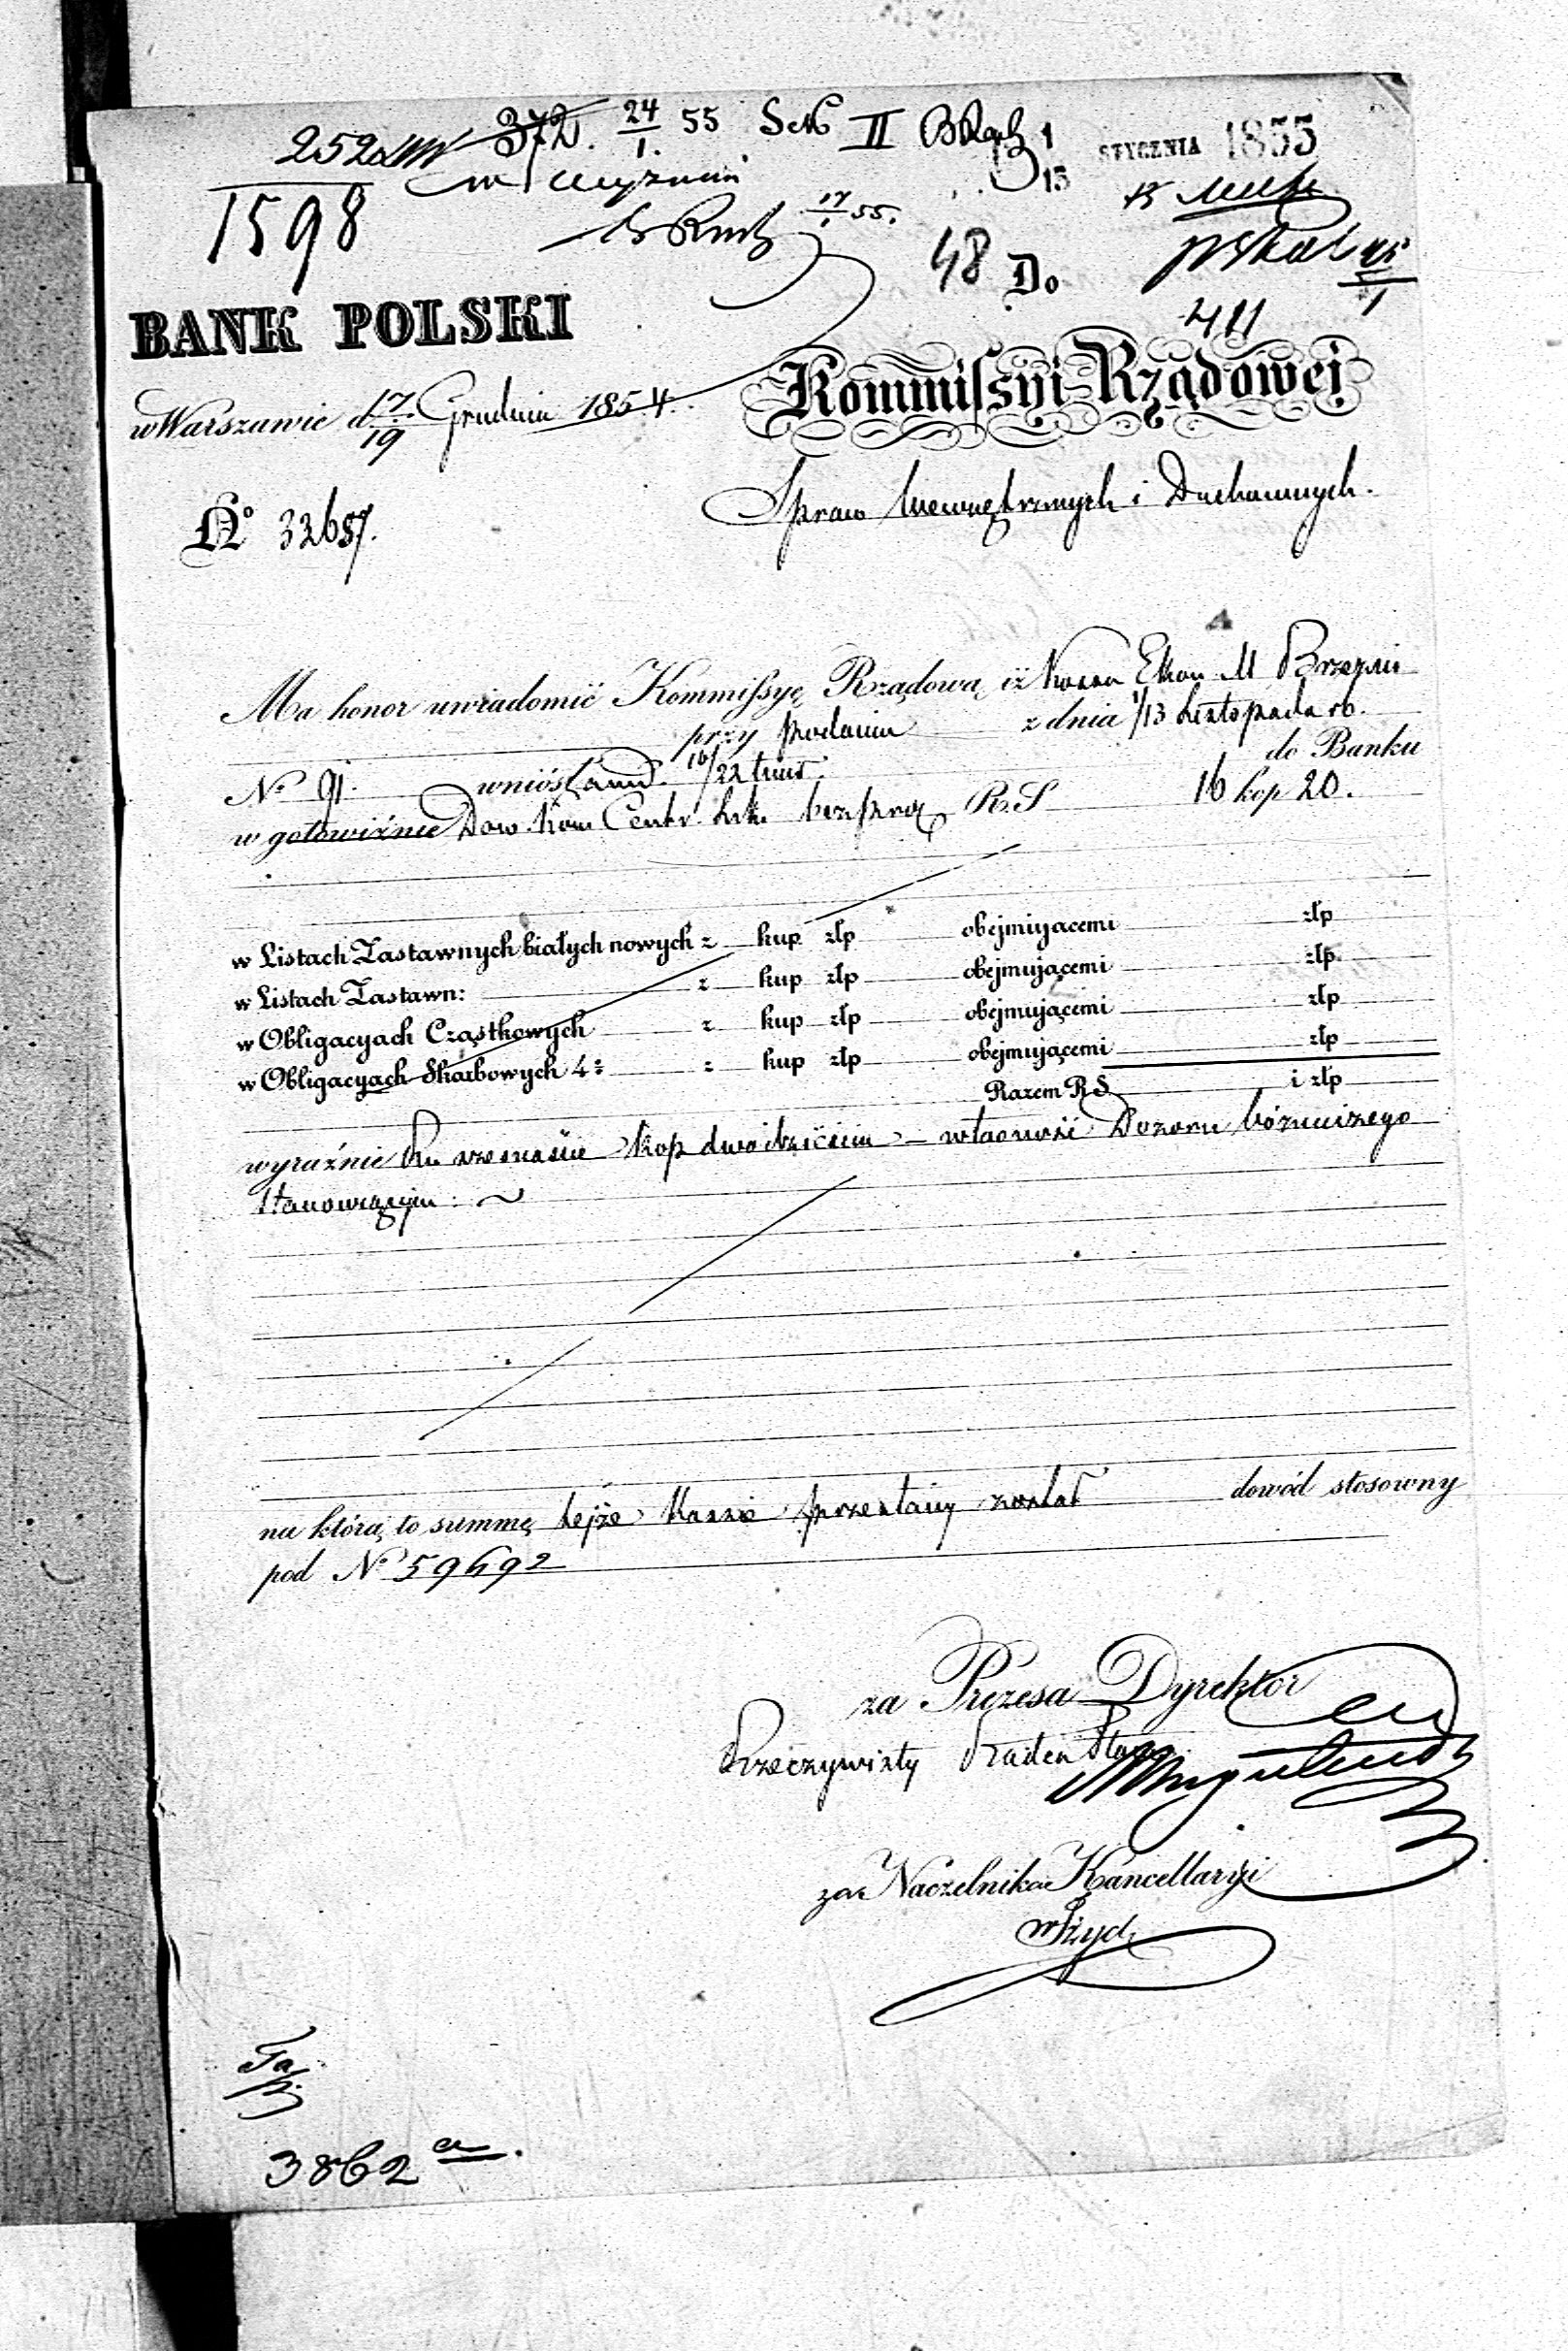 252
372. 24/1. 55 Sek II
1/13 STYCZNIA 1855
1598
17/1 55.
48 Do
411
BANK POLSKI
w Warszawie d 17/19 Grudnia 1854.
Kommissyi Rządowej
Spraw Wewnętrznych i Duchownych.
No 32687.
Ma honor uwiadomić Kommissyę Rządową, iż Kassa Ekon. M Brzezin
przy podaniu z dnia 1/13 Listopada rb.
No 91. wniósł 10/22 do Banku
w gotowiźnie Dow. Kom Centr. bez proc R.S 16 kop 20.
w Listach Zastawnych białych nowych z kup złp obejmującemi złp
w Listach Zastawn: z kup złp obejmującemi złp
w Obligacyach Cząstkowych z kup złp obejmującemi złp
w Obligacyach Skarbowych 4: z kup złp obejmującemi złp
Razem R S i złp
wyraźnie Rs. szesnaście kop dwadzieścia – własność Dozoru bóżniczego
stanowiącym:
na którą to summę tejże Kassie przesłany został dowód stosowny
pod No 59492
za Prezesa Dyrektor
Rzeczywisty Radca Stanu
za Naczelnika Kancellaryi
3862 a.